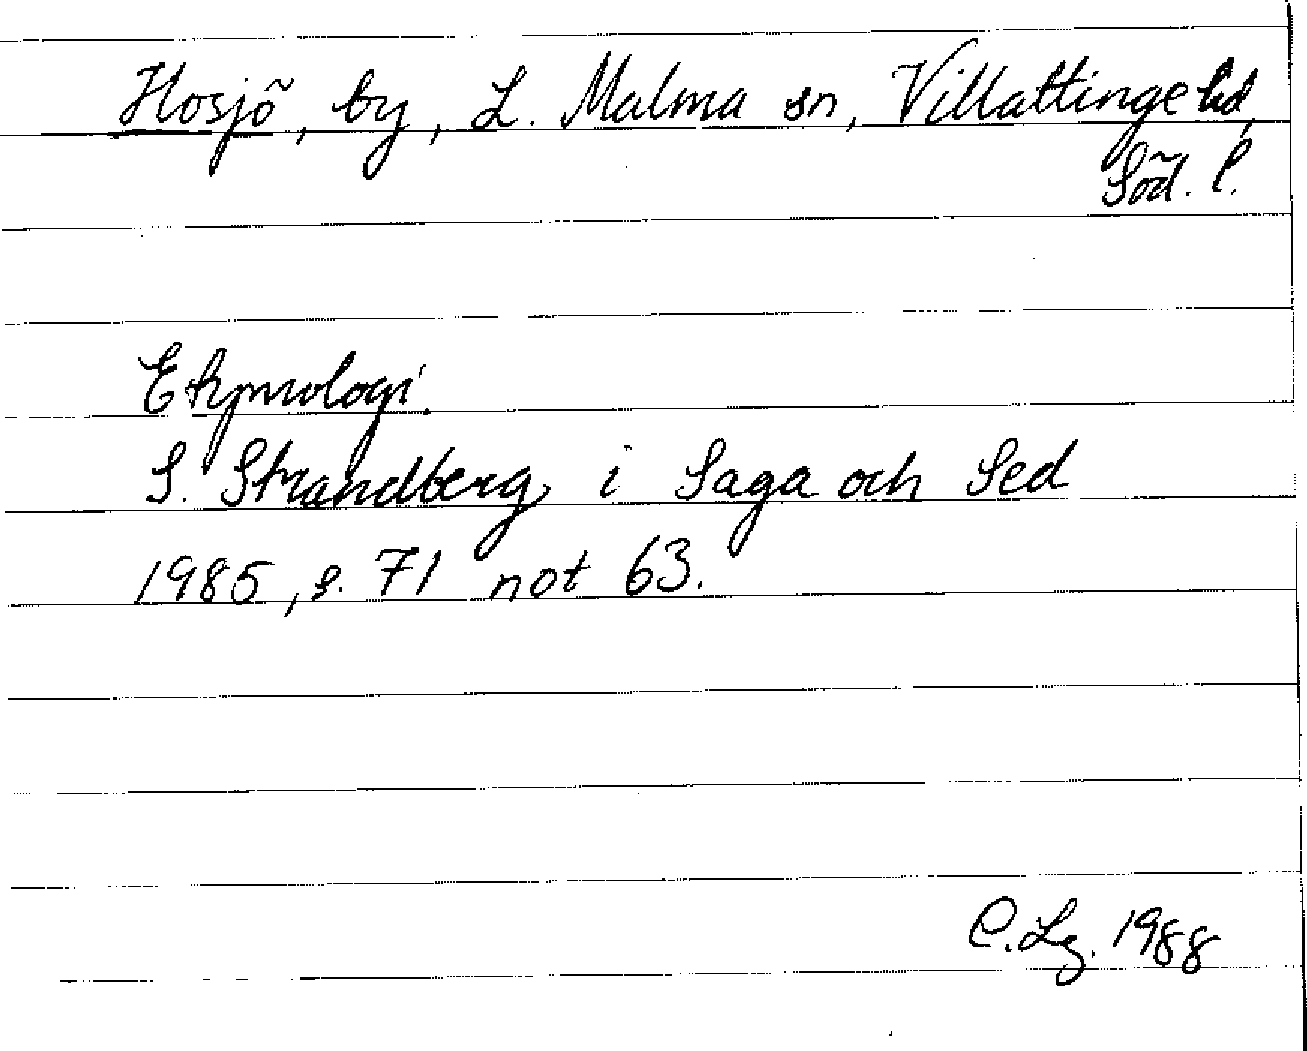 Hosjö, by, L. Malma sn, Villåttinge hd,
Söd. l.
Etymologi.
S. Strandberg i Saga och Sed
1985, s. 71 not 63.
C. Lg. 1988